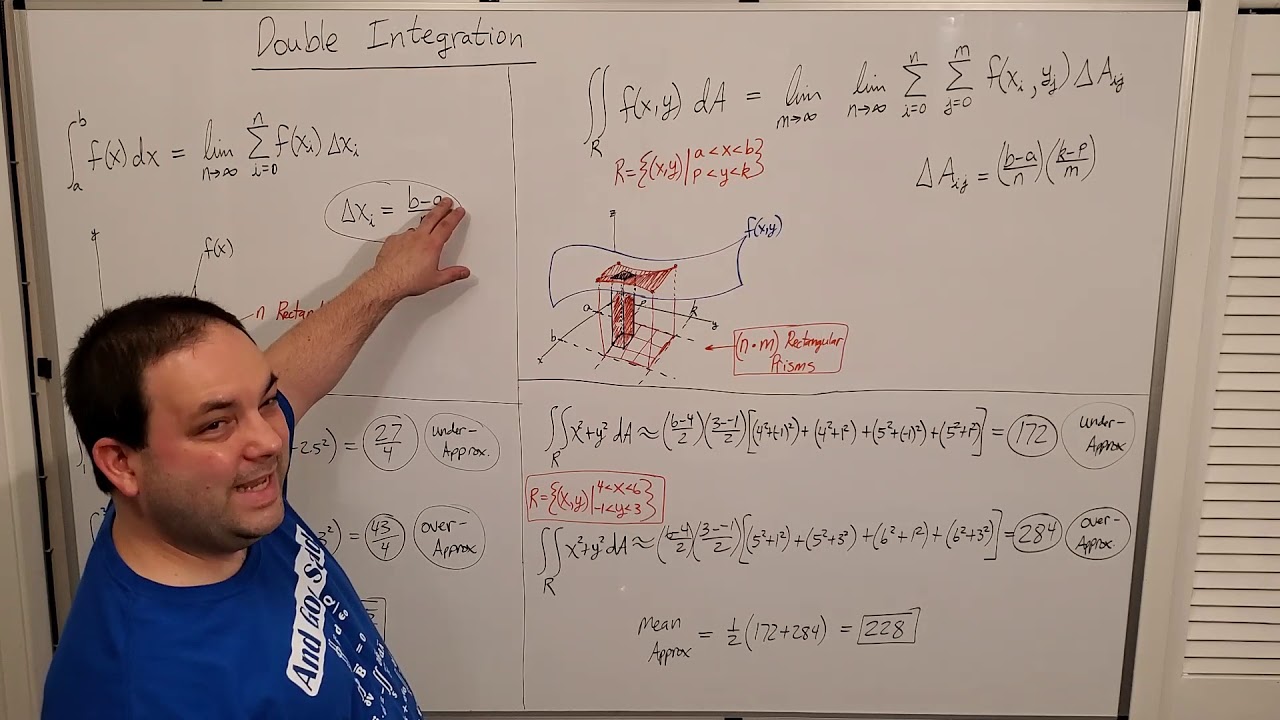 Double Integration
∫_a^b f(x) dx = lim_{n→∞} Σ_{i=0}^n f(x_i) Δx_i
Δx_i = b-a
y
f(x)
n
-2.5²) = 27/4
under-
Approx.
3²) = 43/4
over-
Approx.
∬_R f(x,y) dA = lim_{m→∞} lim_{n→∞} Σ_{i=0}^n Σ_{j=0}^m f(x_i, y_j) ΔA_ij
R={(x,y)| a<x<b
p<y<k}
ΔA_ij = (b-a/n)(k-p/m)
z
f(x,y)
a
P
k
y
b
x
(n·m) Rectangular
Prisms
∬_R x²+y² dA ≈ (6-4/2)(3--1/2)[(4²+(-1)²)+(4²+1²)+(5²+(-1)²)+(5²+1²)] = 172
under-
Approx
R={(x,y)| 4<x<6
-1<y<3}
∬_R x²+y² dA ≈ (6-4/2)(3--1/2)[(5²+1²)+(5²+3²)+(6²+1²)+(6²+3²)] = 284
over-
Approx.
Mean
Approx = 1/2 (172+284) = 228
And God Said